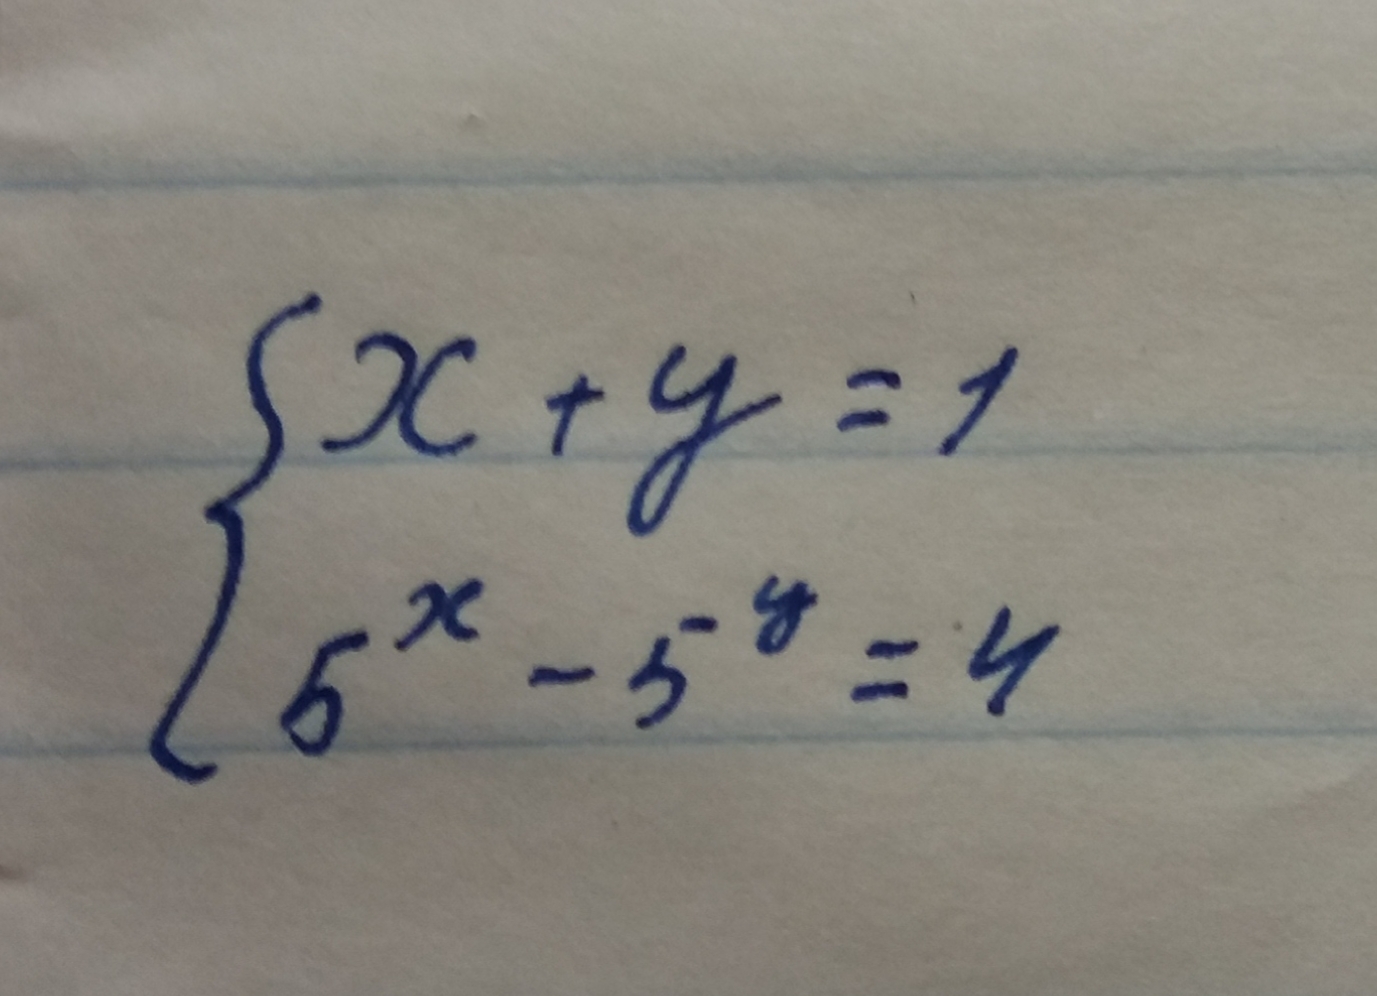 { x + y = 1
5^x - 5^-y = 4